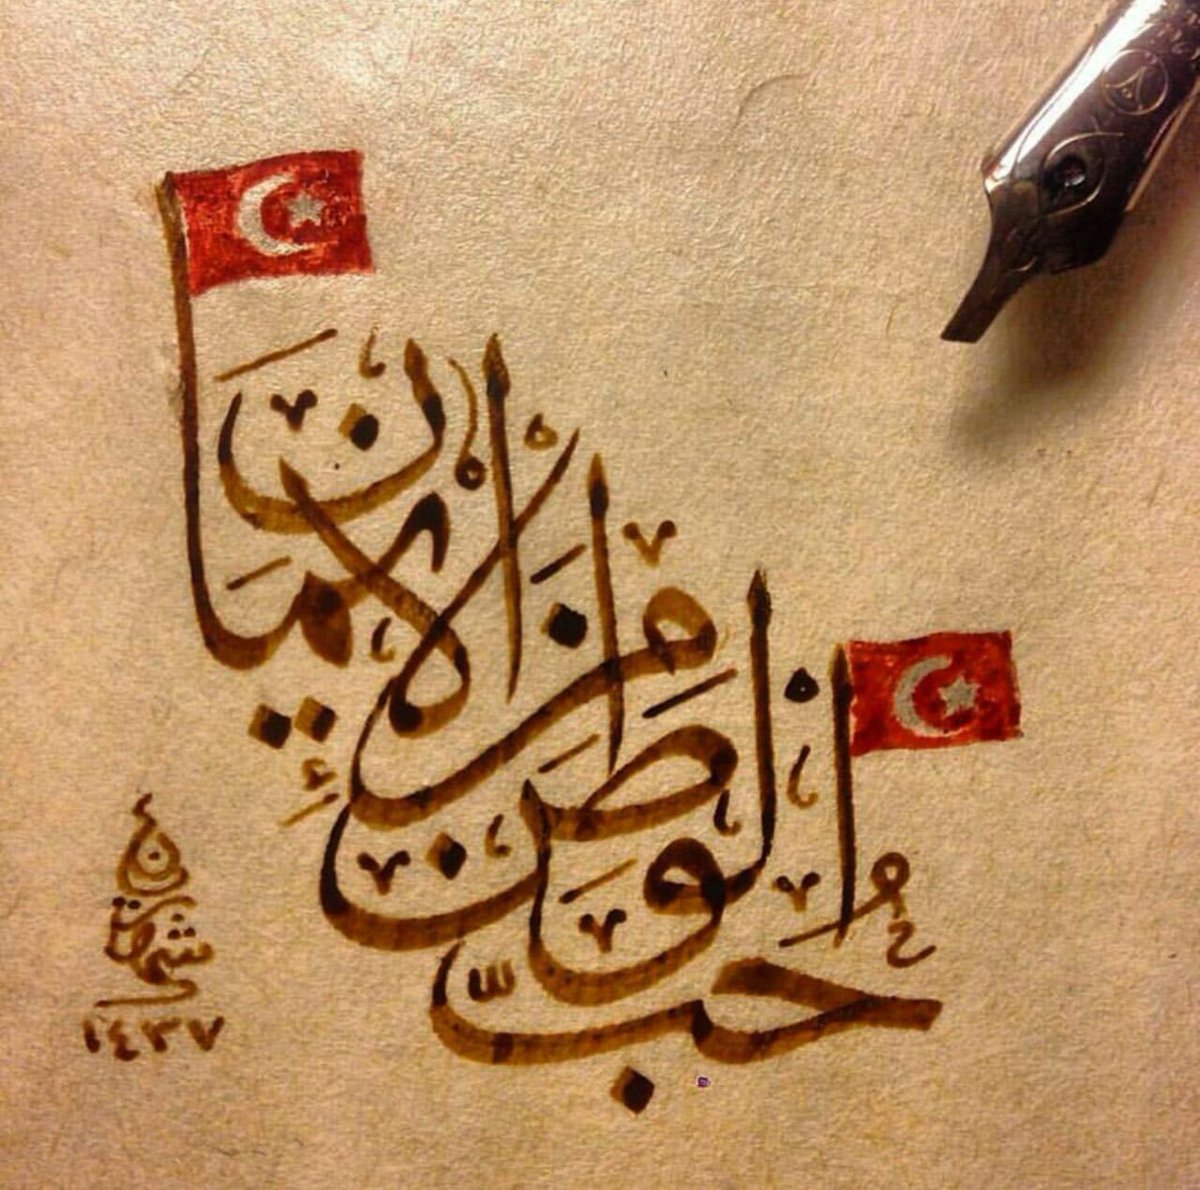 حُبُّ الْوَطَنِ مِنَ الْإِيمَانِ
١٤٣٧